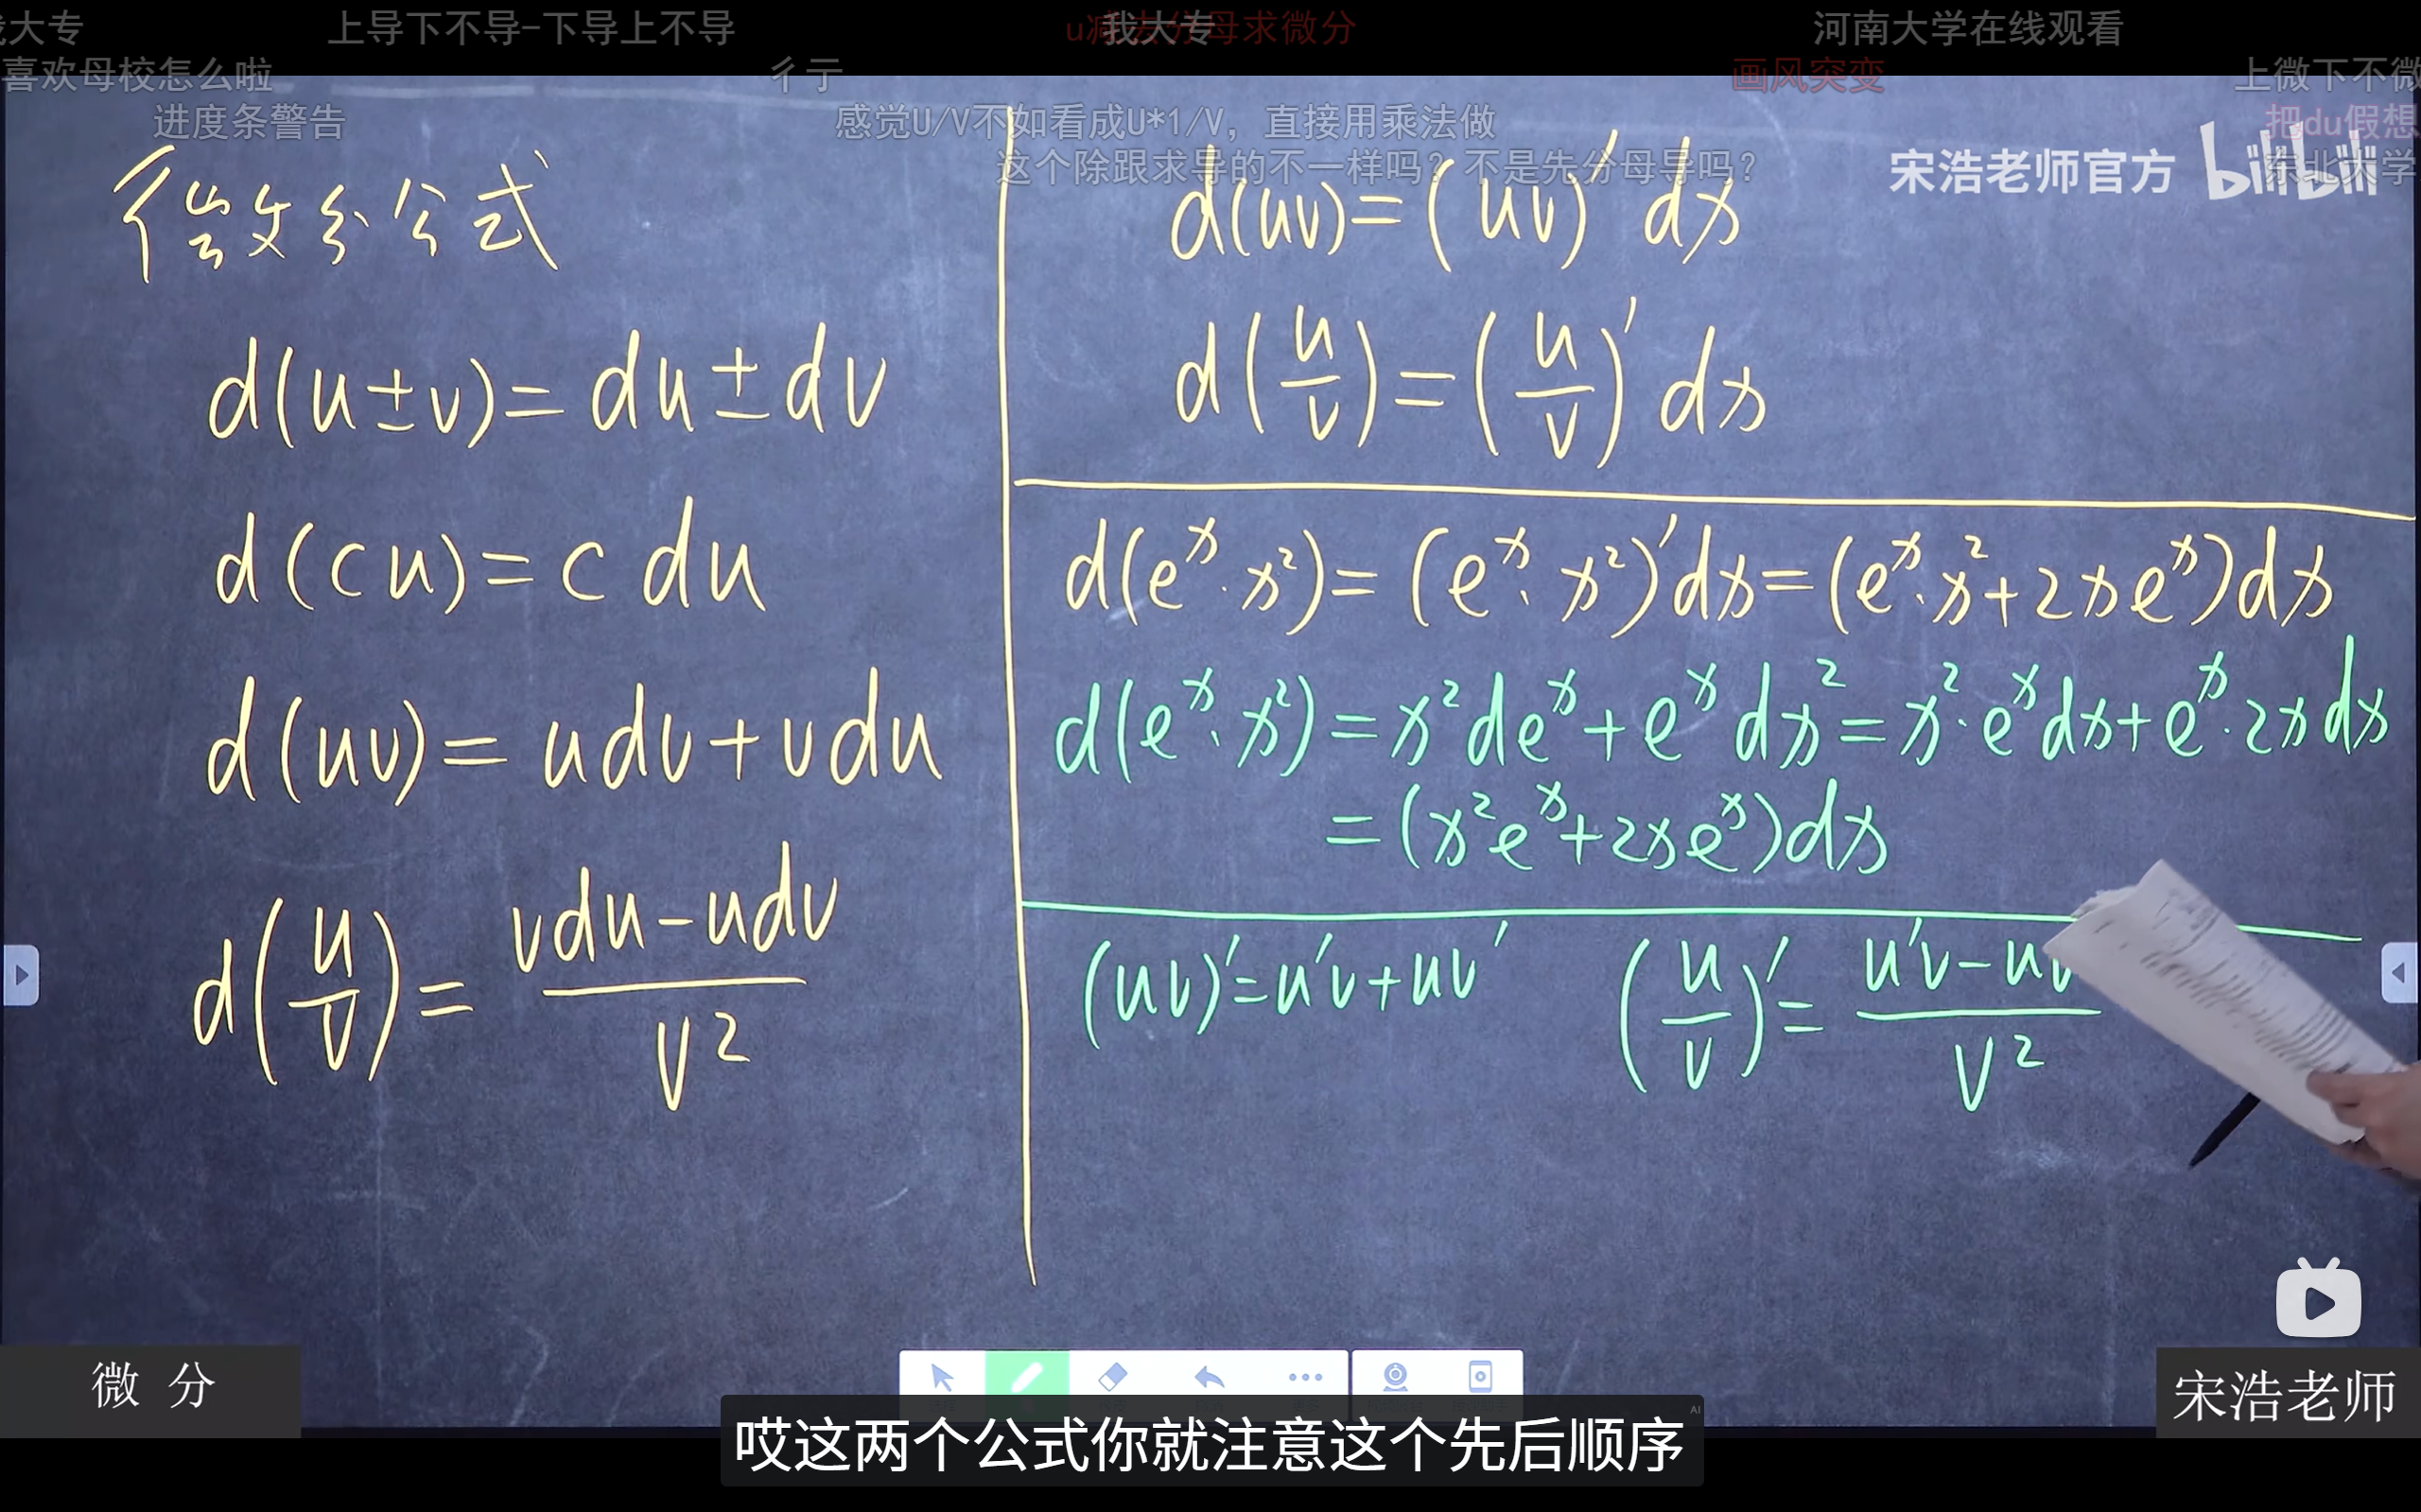 我大专
上导下不导-下导上不导
u减去分母求微分
我大专
河南大学在线观看
喜欢母校怎么啦
彳亍
画风突变
上微下不微
进度条警告
感觉U/V不如看成U*1/V，直接用乘法做
把du假想
这个除跟求导的不一样吗？不是先分母导吗？
宋浩老师官方 bilibili
东北大学
微分公式
d(u±v)=du±dv
d(cu)=c du
d(uv)=udv+vdu
d(u/v)=(vdu-udv)/v²
d(uv)=(uv)'dx
d(u/v)=(u/v)'dx
d(eˣ·x²)=(eˣ·x²)'dx=(eˣ·x²+2xeˣ)dx
d(eˣ·x²)=x²deˣ+eˣdx²=x²·eˣdx+eˣ·2xdx
=(x²eˣ+2xeˣ)dx
(uv)'=u'v+uv'
(u/v)'=(u'v-uv)/v²
微 分
宋浩老师
AI
哎这两个公式你就注意这个先后顺序